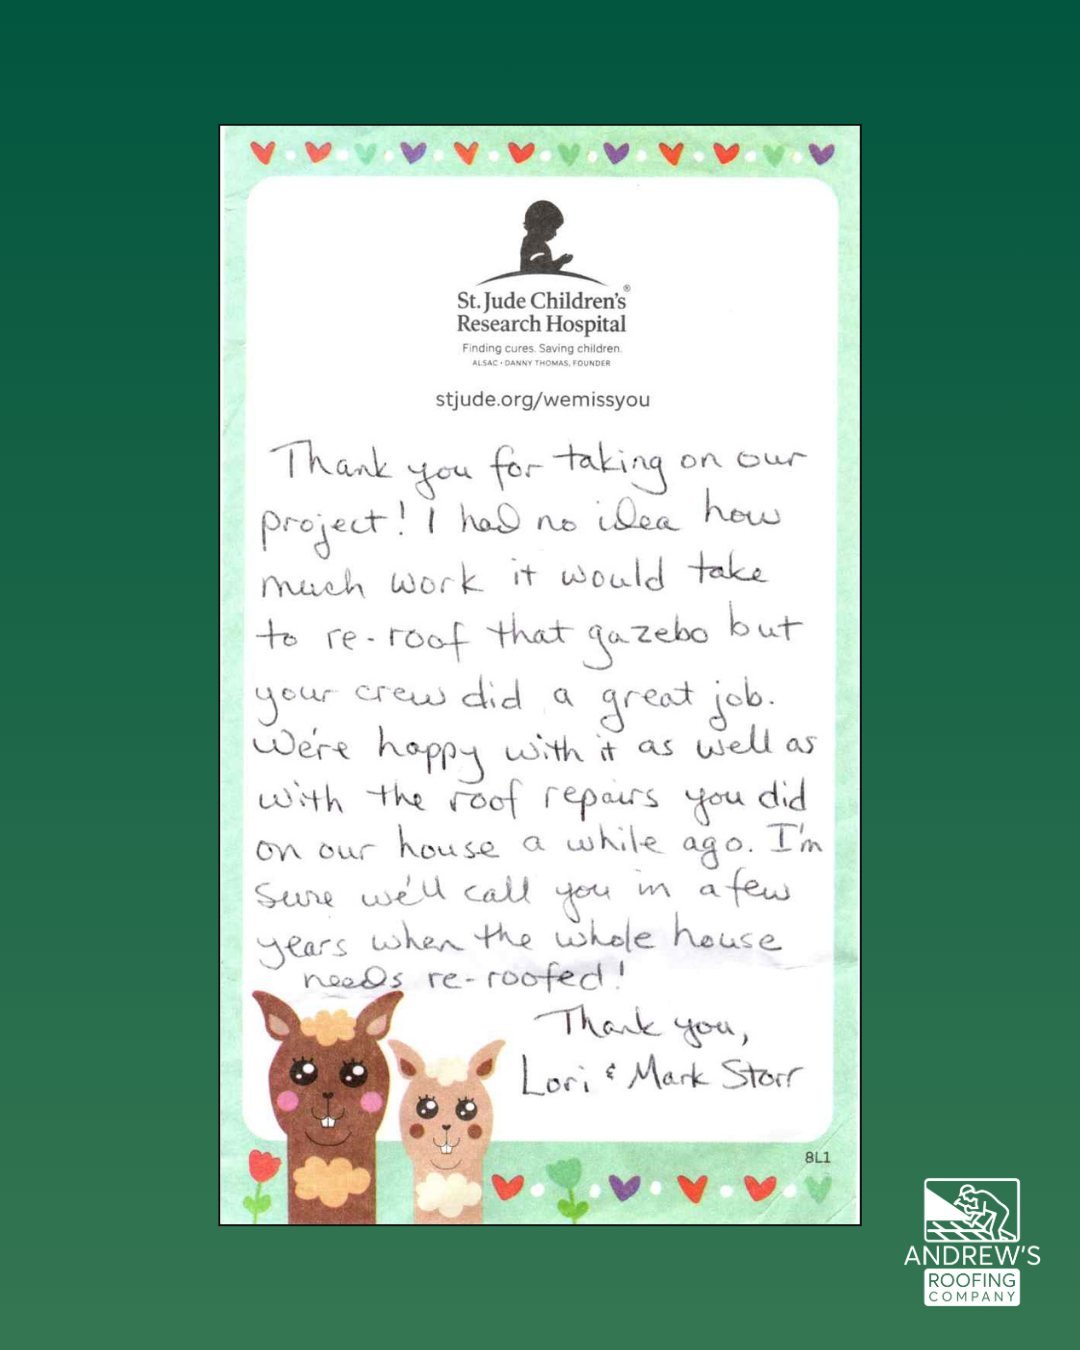 St. Jude Children's®
Research Hospital
Finding cures. Saving children.
ALSAC • DANNY THOMAS, FOUNDER
stjude.org/wemissyou
Thank you for taking on our
project! I had no idea how
much work it would take
to re-roof that gazebo but
your crew did a great job.
We're happy with it as well as
with the roof repairs you did
on our house a while ago. I'm
sure we'll call you in a few
years when the whole house
needs re-roofed!
Thank you,
Lori & Mark Storr
8L1
ANDREW'S
ROOFING
COMPANY